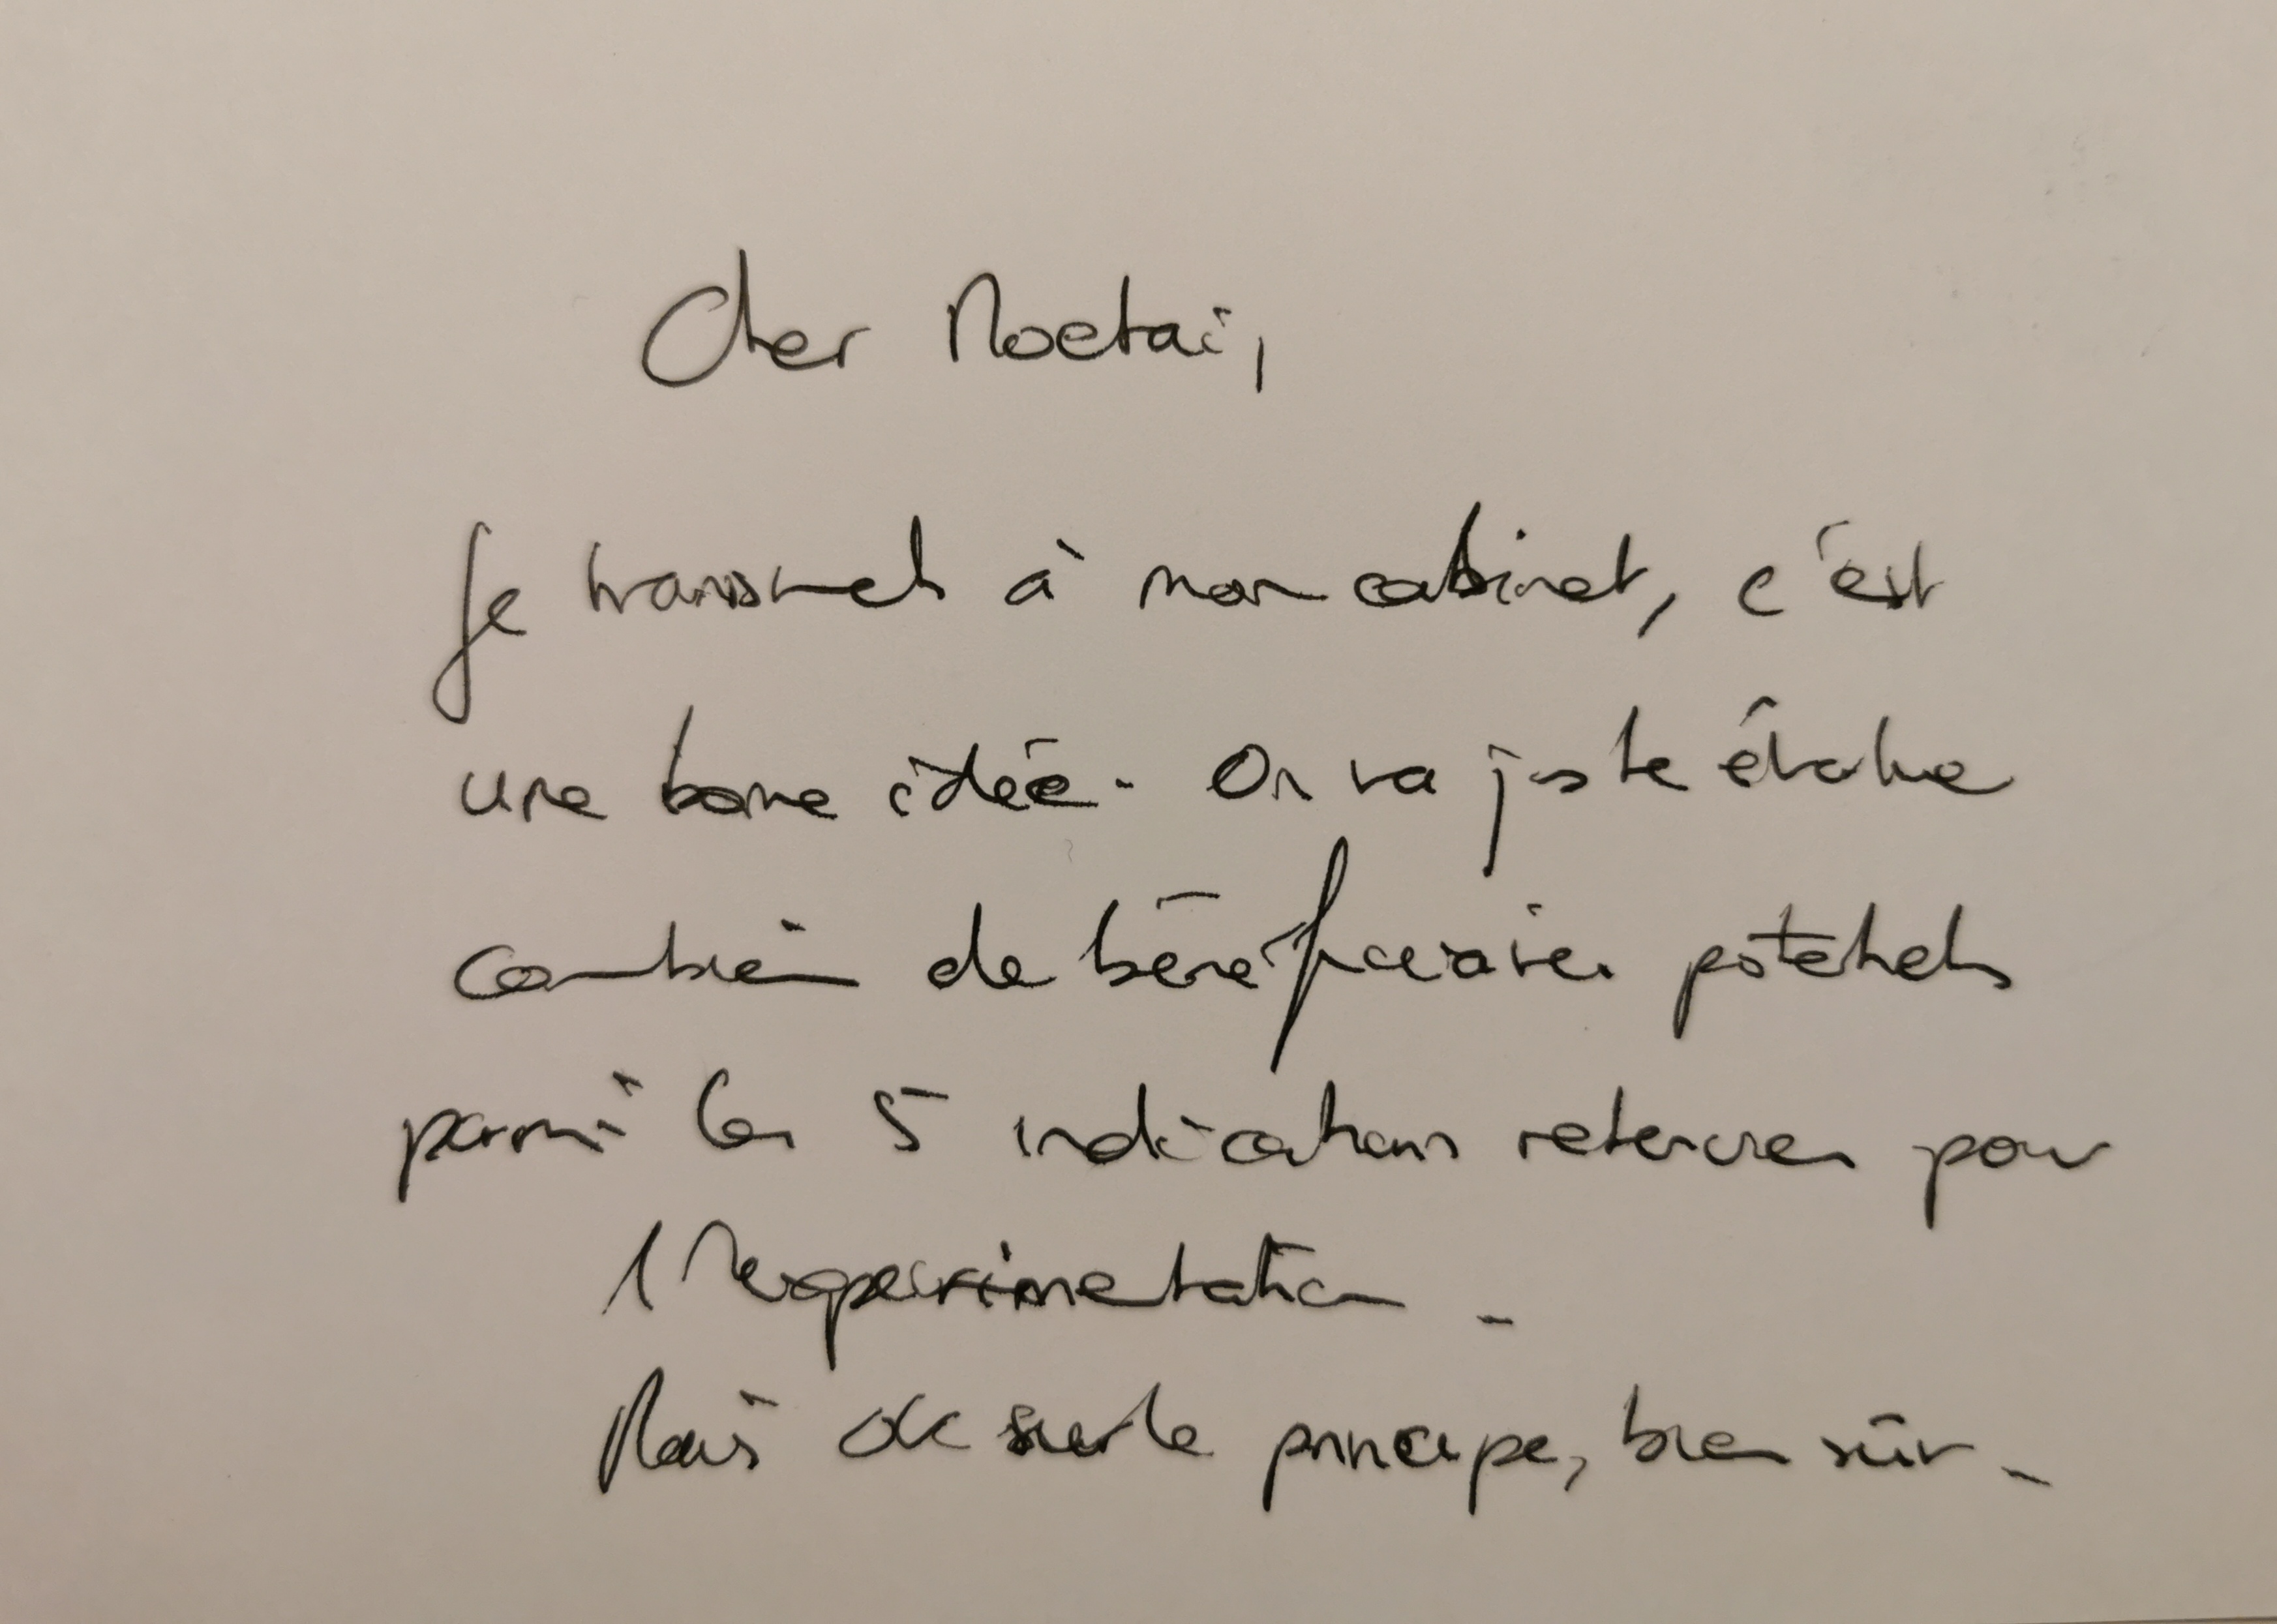 Cher Moetai,
Je transmets à mon cabinet, c'est
une bonne idée. On va juste évaluer
combien de bénéficiaires potentiels
parmi les 5 indications retenues pour
l'expérimentation.
Mais ok sur le principe, bien sûr.